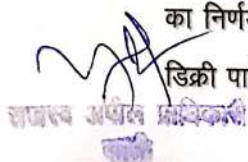 का निर्णय
डिक्री पा
राजस्व अपील प्राधिकारी